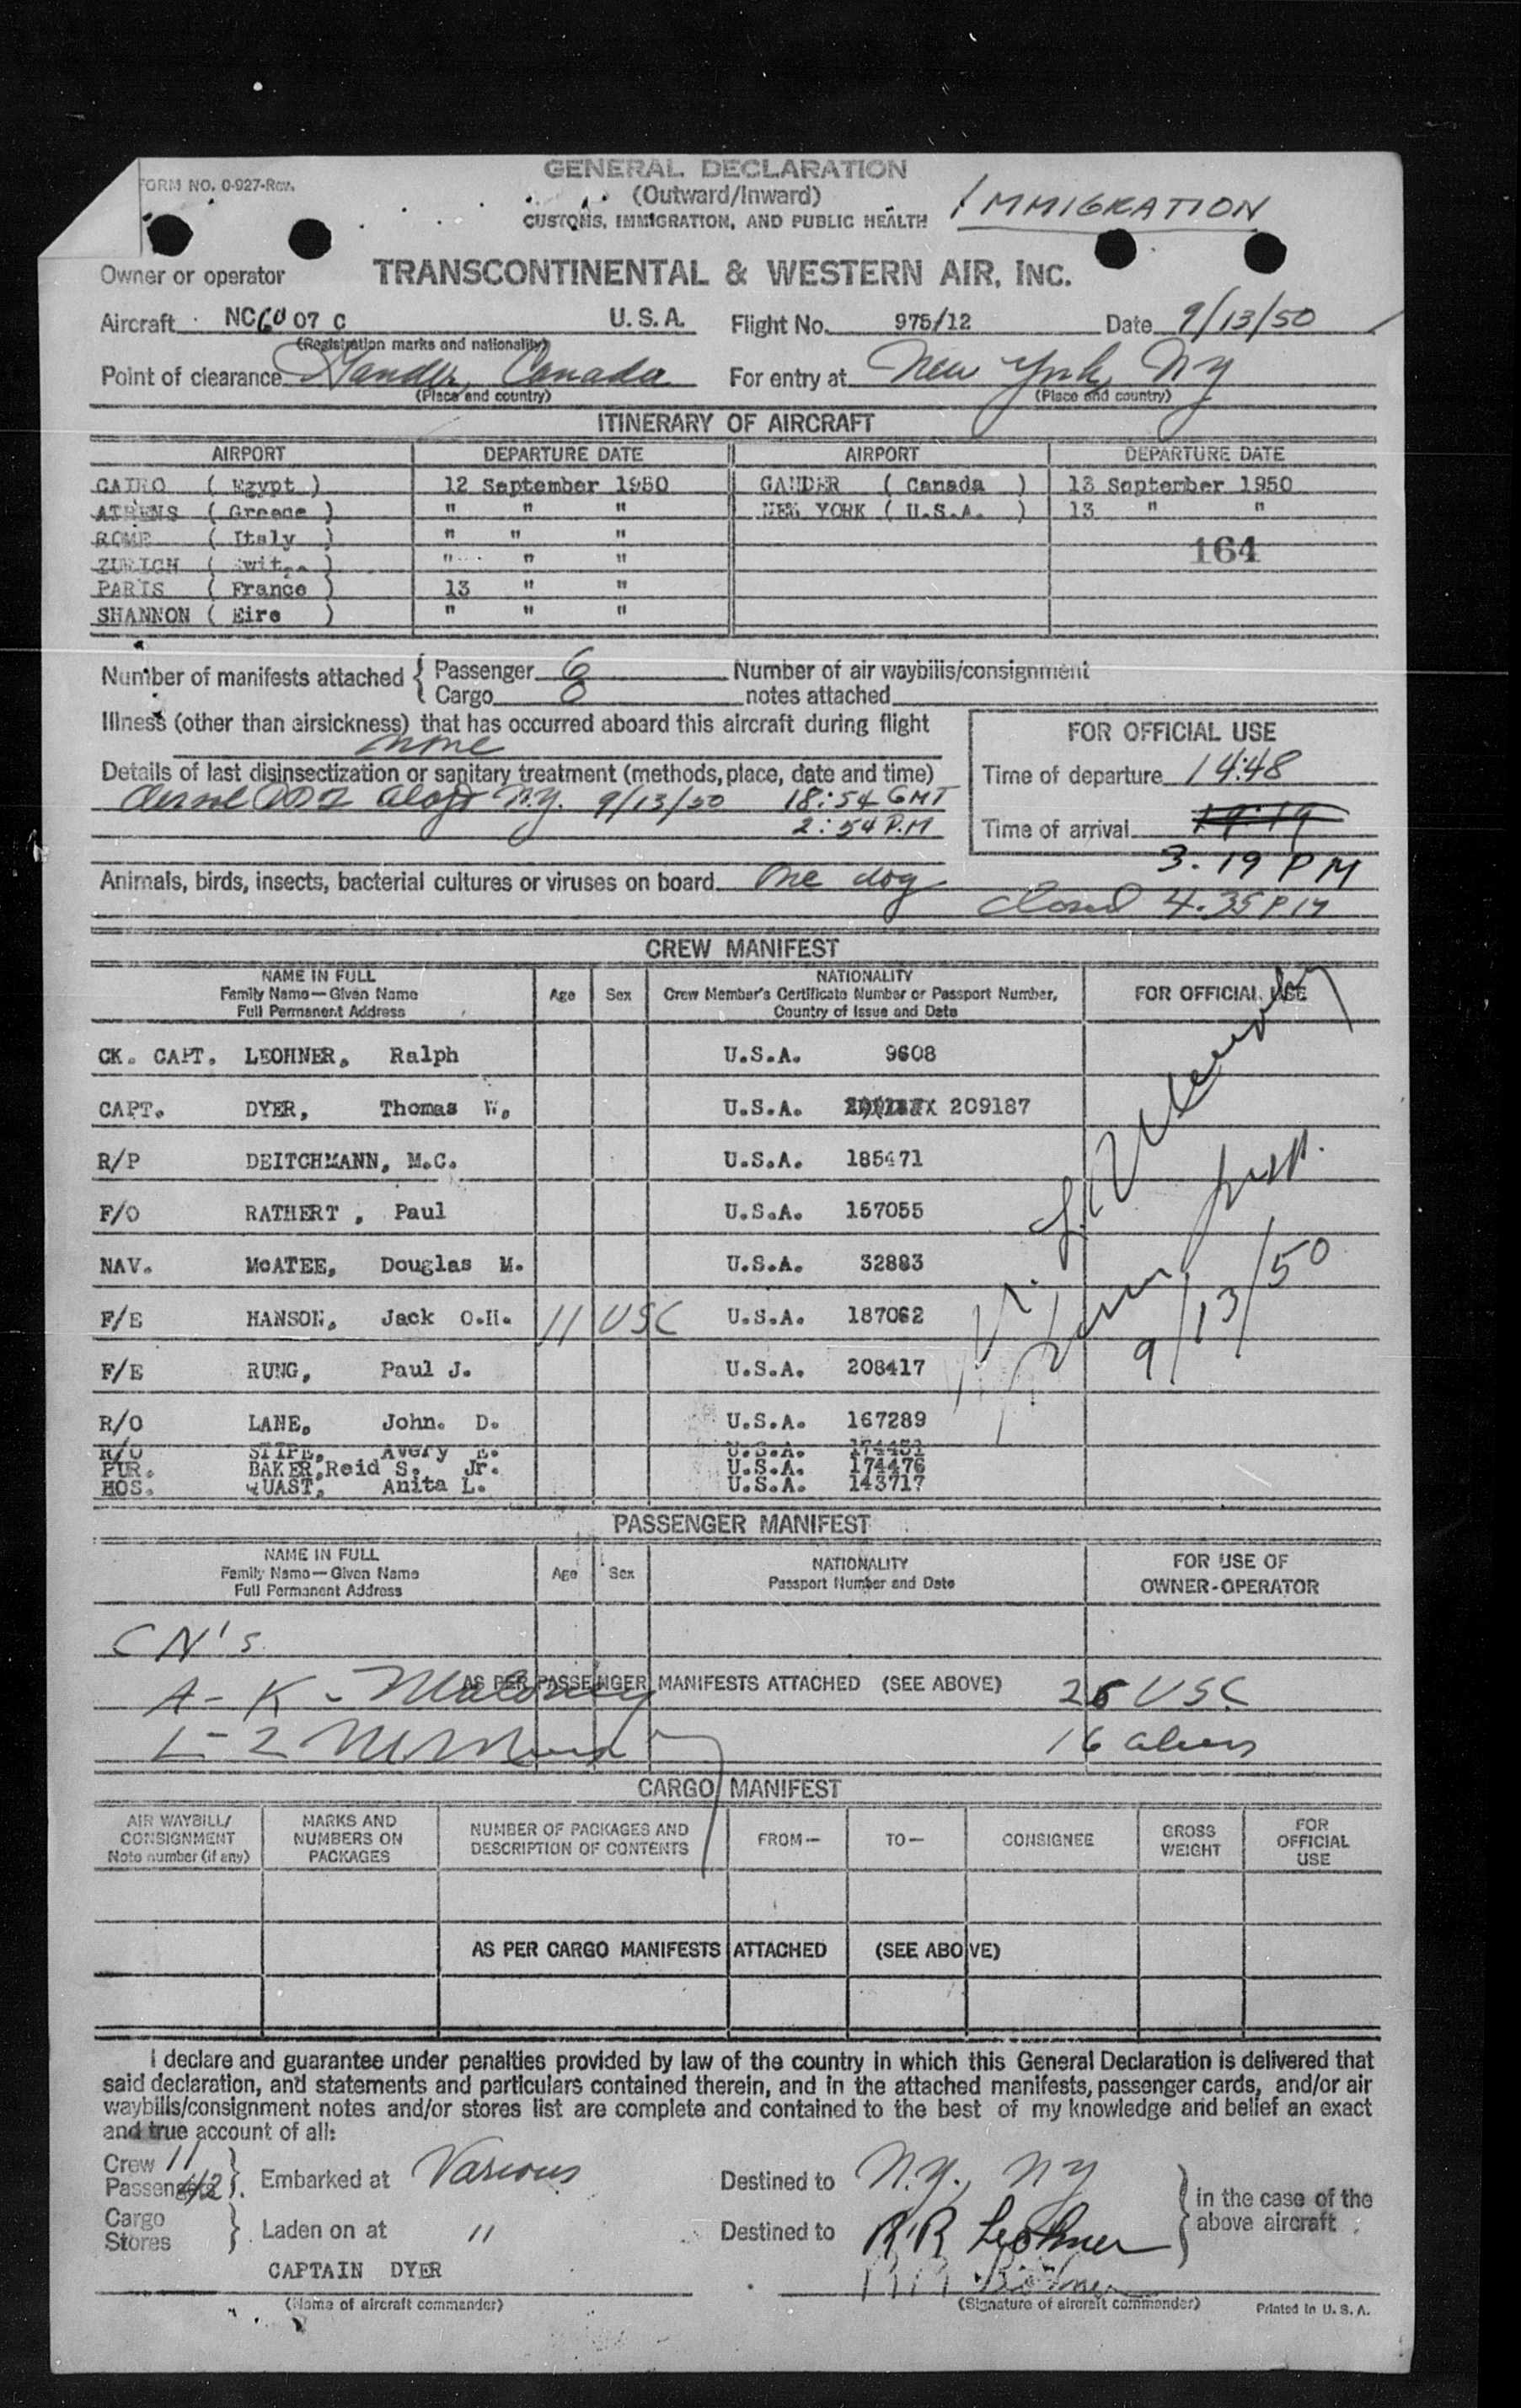 FORM NO. 0-927-Rev.
GENERAL DECLARATION
(Outward/Inward)
CUSTOMS, IMMIGRATION, AND PUBLIC HEALTH
IMMIGRATION
Owner or operator TRANSCONTINENTAL & WESTERN AIR, INC.
Aircraft NC6007 C U.S.A. Flight No. 975/12 Date 9/13/50
(Registration marks and nationality)
Point of clearance Gander, Canada For entry at New York, NY
(Place and country) (Place and country)
ITINERARY OF AIRCRAFT
AIRPORT DEPARTURE DATE AIRPORT DEPARTURE DATE
CAIRO ( Egypt ) 12 September 1950 GANDER ( Canada ) 13 September 1950
ATHENS ( Greece ) " " " NEW YORK ( U.S.A. ) 13 " "
ROME ( Italy ) " " "
164
ZURICH ( ) " " "
PARIS ( France ) 13 " "
SHANNON ( Eire ) " " "
Number of manifests attached { Passenger 6 Number of air waybills/consignment
Cargo 0 notes attached
Illness (other than airsickness) that has occurred aboard this aircraft during flight
none
FOR OFFICIAL USE
Details of last disinsectization or sanitary treatment (methods, place, date and time)
Time of departure 14:48
N.Y. 9/13/50 18:54 GMT
2:54 P.M
Time of arrival 19:19
3.19 PM
Animals, birds, insects, bacterial cultures or viruses on board One dog
closed 4.35 PM
CREW MANIFEST
NAME IN FULL
Family Name—Given Name
Full Permanent Address
Age Sex
NATIONALITY
Crew Member's Certificate Number or Passport Number,
Country of Issue and Date
FOR OFFICIAL USE
CK. CAPT. LEOHNER, Ralph U.S.A. 9608
CAPT. DYER, Thomas W. U.S.A. 209187
R/P DEITCHMANN, M.C. U.S.A. 185471
F/O RATHERT , Paul U.S.A. 157055
NAV. McATEE, Douglas M. U.S.A. 32883
F/E HANSON, Jack O.H. 11 USC U.S.A. 187062
F/E RUNG, Paul J. U.S.A. 208417
R/O LANE, John. D. U.S.A. 167289
R/O STIPE, Avery E. U.S.A. 174451
PUR. BAKER, Reid S. Jr. U.S.A. 174476
HOS. QUAST, Anita L. U.S.A. 143717
9/13/50
PASSENGER MANIFEST
NAME IN FULL
Family Name—Given Name
Full Permanent Address
Age Sex
NATIONALITY
Passport Number and Date
FOR USE OF
OWNER-OPERATOR
CN's
A-K- Maloney
AS PER PASSENGER MANIFESTS ATTACHED (SEE ABOVE) 26 USC
L-Z
16 aliens
CARGO MANIFEST
AIR WAYBILL/
CONSIGNMENT
Note number (if any)
MARKS AND
NUMBERS ON
PACKAGES
NUMBER OF PACKAGES AND
DESCRIPTION OF CONTENTS
FROM— TO— CONSIGNEE
GROSS
WEIGHT
FOR
OFFICIAL
USE
AS PER CARGO MANIFESTS ATTACHED (SEE ABOVE)
I declare and guarantee under penalties provided by law of the country in which this General Declaration is delivered that
said declaration, and statements and particulars contained therein, and in the attached manifests, passenger cards, and/or air
waybills/consignment notes and/or stores list are complete and contained to the best of my knowledge and belief an exact
and true account of all:
Crew 11
Passengers 42 } Embarked at Various Destined to N.Y., NY
in the case of the
above aircraft
Cargo
Stores } Laden on at " Destined to R R Leohner
CAPTAIN DYER
(Name of aircraft commander) (Signature of aircraft commander) Printed in U. S. A.